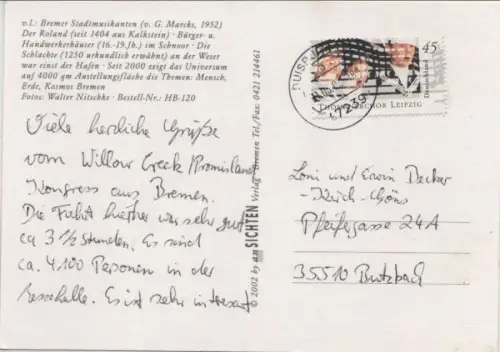 v.l.: Bremer Stadtmusikanten (v. G. Marcks, 1952)
Der Roland (seit 1404 aus Kalkstein) · Bürger- u.
Handwerkerhäuser (16.-19.Jh.) im Schnoor · Die
Schlachte (1250 urkundlich erwähnt) an der Weser
war einst der Hafen · Seit 2000 zeigt das Universum
auf 4000 qm Austellungsfläche die Themen: Mensch,
Erde, Kosmos Bremen
Fotos: Walter Nitschke · Bestell-Nr.: HB-120
Viele herzliche Grüße
vom Willow Creek Promisland
Kongress aus Bremen.
Die Fahrt hierher war sehr gut
ca 3 1/2 Stunden. Es sind
ca. 4100 Personen in der
Messehalle. Es ist sehr intressant
© 2002 by anSICHTEN Verlag · Bremen Tel./Fax: 0421 214461
DUISBURG
47239
45
Deutschland
Thomanerchor Leipzig
Loni und Erwin Decker
-Kirch-Göns
Pfeifergasse 24A
35510 Butzbach